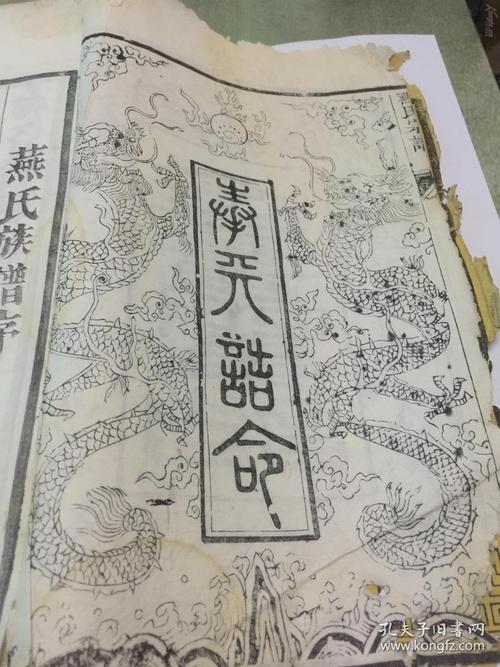 奉天誥命
燕氏族譜序
燕氏
孔夫子旧书网
www.kongfz.com